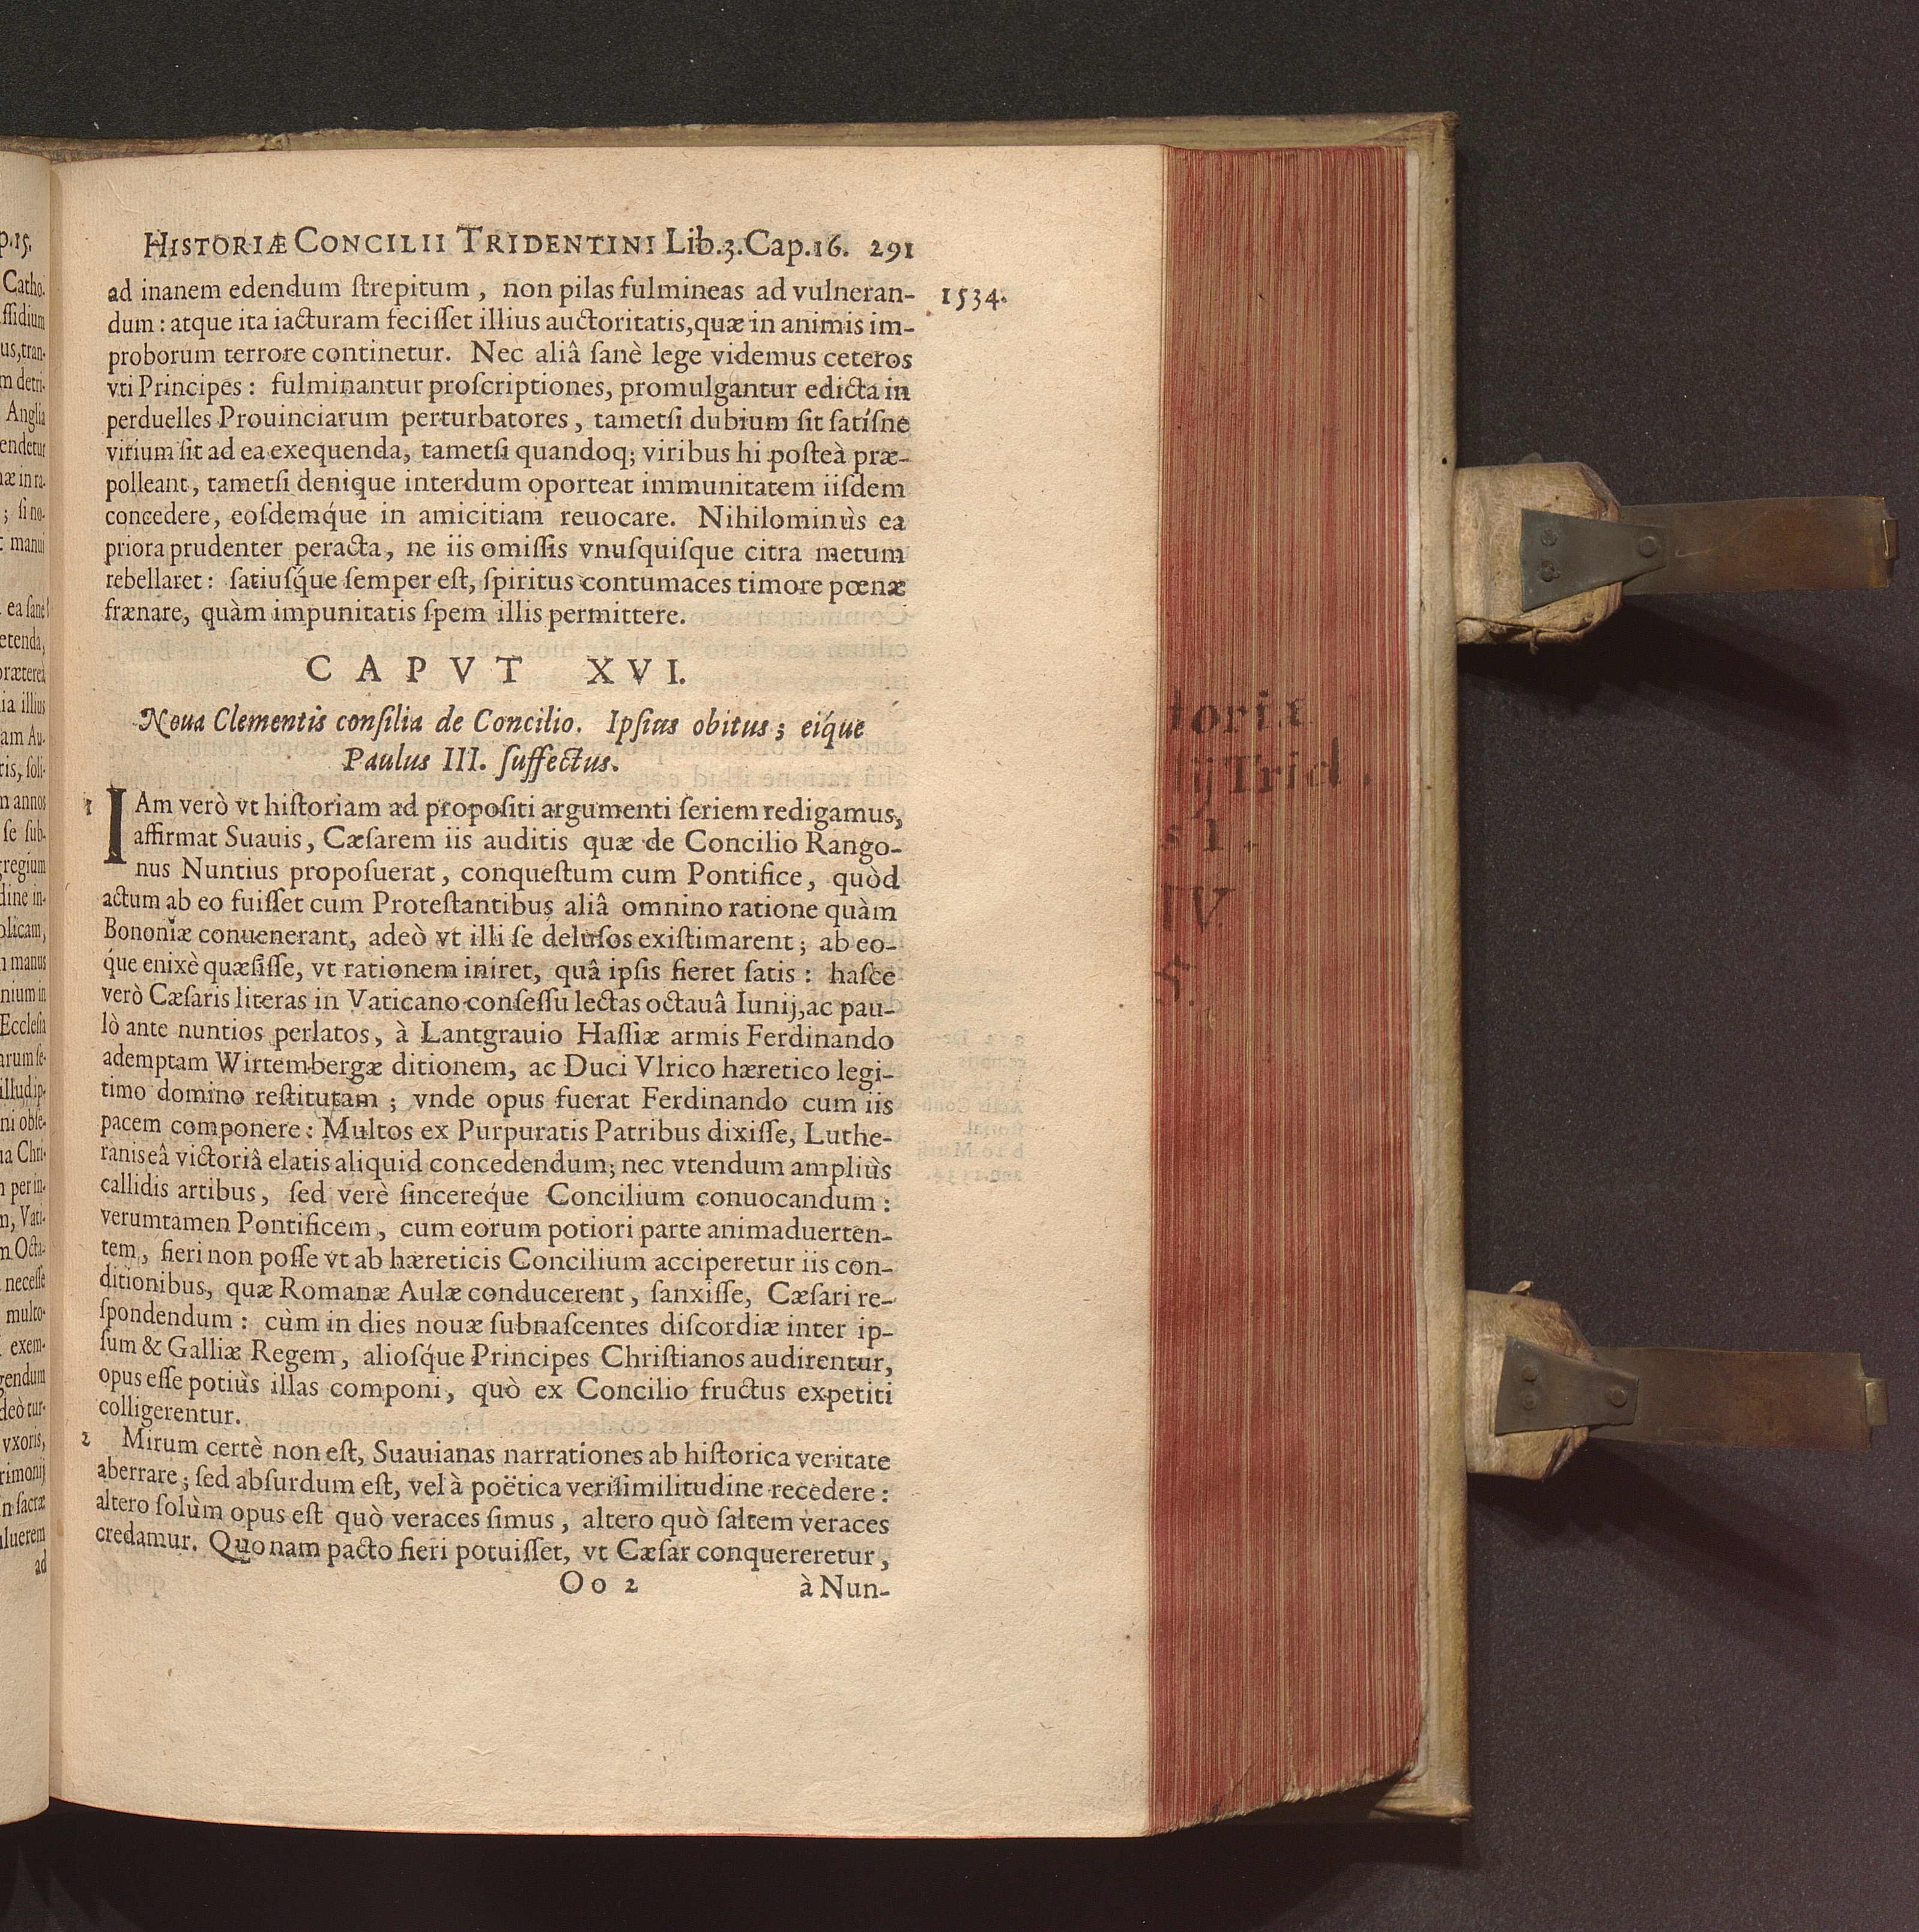 HISTORIÆ CONCILII TRIDENTINI Lib.3.Cap.16. 291
1534.
ad inanem edendum ſtrepitum, non pilas fulmineas ad vulneran-
dum: atque ita iacturam feciſſet illius auctoritatis, quæ in animis im-
proborum terrore continetur. Nec aliâ ſanè lege videmus ceteros
vti Principes: fulminantur proſcriptiones, promulgantur edicta in
perduelles Prouinciarum perturbatores, tametſi dubium ſit ſatíſne
virium ſit ad ea exequenda, tametſi quandoq; viribus hi poſteà præ-
polleant, tametſi denique interdum oporteat immunitatem iiſdem
concedere, eoſdemq́ue in amicitiam reuocare. Nihilominùs ea
priora prudenter peracta, ne iis omiſſis vnuſquiſque citra metum
rebellaret: ſatiuſq́ue ſemper eſt, ſpiritus contumaces timore pœnæ
frænare, quàm impunitatis ſpem illis permittere.
CAPVT XVI.
Noua Clementis conſilia de Concilio. Ipſius obitus; eíque
Paulus III. ſuffectus.
1 IAm verò vt hiſtoriam ad propoſiti argumenti ſeriem redigamus,
affirmat Suauis, Cæſarem iis auditis quæ de Concilio Rango-
nus Nuntius propoſuerat, conqueſtum cum Pontifice, quòd
actum ab eo fuiſſet cum Proteſtantibus aliâ omnino ratione quàm
Bononiæ conuenerant, adeò vt illi ſe deluſos exiſtimarent; ab eo-
q́ue enixè quæſiſſe, vt rationem iniret, quâ ipſis fieret ſatis: haſce
verò Cæſaris literas in Vaticano conſeſſu lectas octauâ Iunij, ac pau-
lò ante nuntios perlatos, à Lantgrauio Haſſiæ armis Ferdinando
ademptam Wirtembergæ ditionem, ac Duci Vlrico hæretico legi-
timo domino reſtitutam; vnde opus fuerat Ferdinando cum iis
pacem componere: Multos ex Purpuratis Patribus dixiſſe, Luthe-
ranis eâ victoriâ elatis aliquid concedendum; nec vtendum ampliùs
callidis artibus, ſed verè ſincereq́ue Concilium conuocandum:
verumtamen Pontificem, cum eorum potiori parte animaduerten-
tem, fieri non poſſe vt ab hæreticis Concilium acciperetur iis con-
ditionibus, quæ Romanæ Aulæ conducerent, ſanxiſſe, Cæſari re-
ſpondendum: cùm in dies nouæ ſubnaſcentes diſcordiæ inter ip-
ſum & Galliæ Regem, alioſq́ue Principes Chriſtianos audirentur,
opus eſſe potiùs illas componi, quò ex Concilio fructus expetiti
colligerentur.
2 Mirum certè non eſt, Suauianas narrationes ab hiſtorica veritate
aberrare; ſed abſurdum eſt, vel à poëtica veriſimilitudine recedere:
altero ſolùm opus eſt quò veraces ſimus, altero quò ſaltem veraces
credamur. Quonam pacto fieri potuiſſet, vt Cæſar conquereretur,
Oo 2 à Nun-